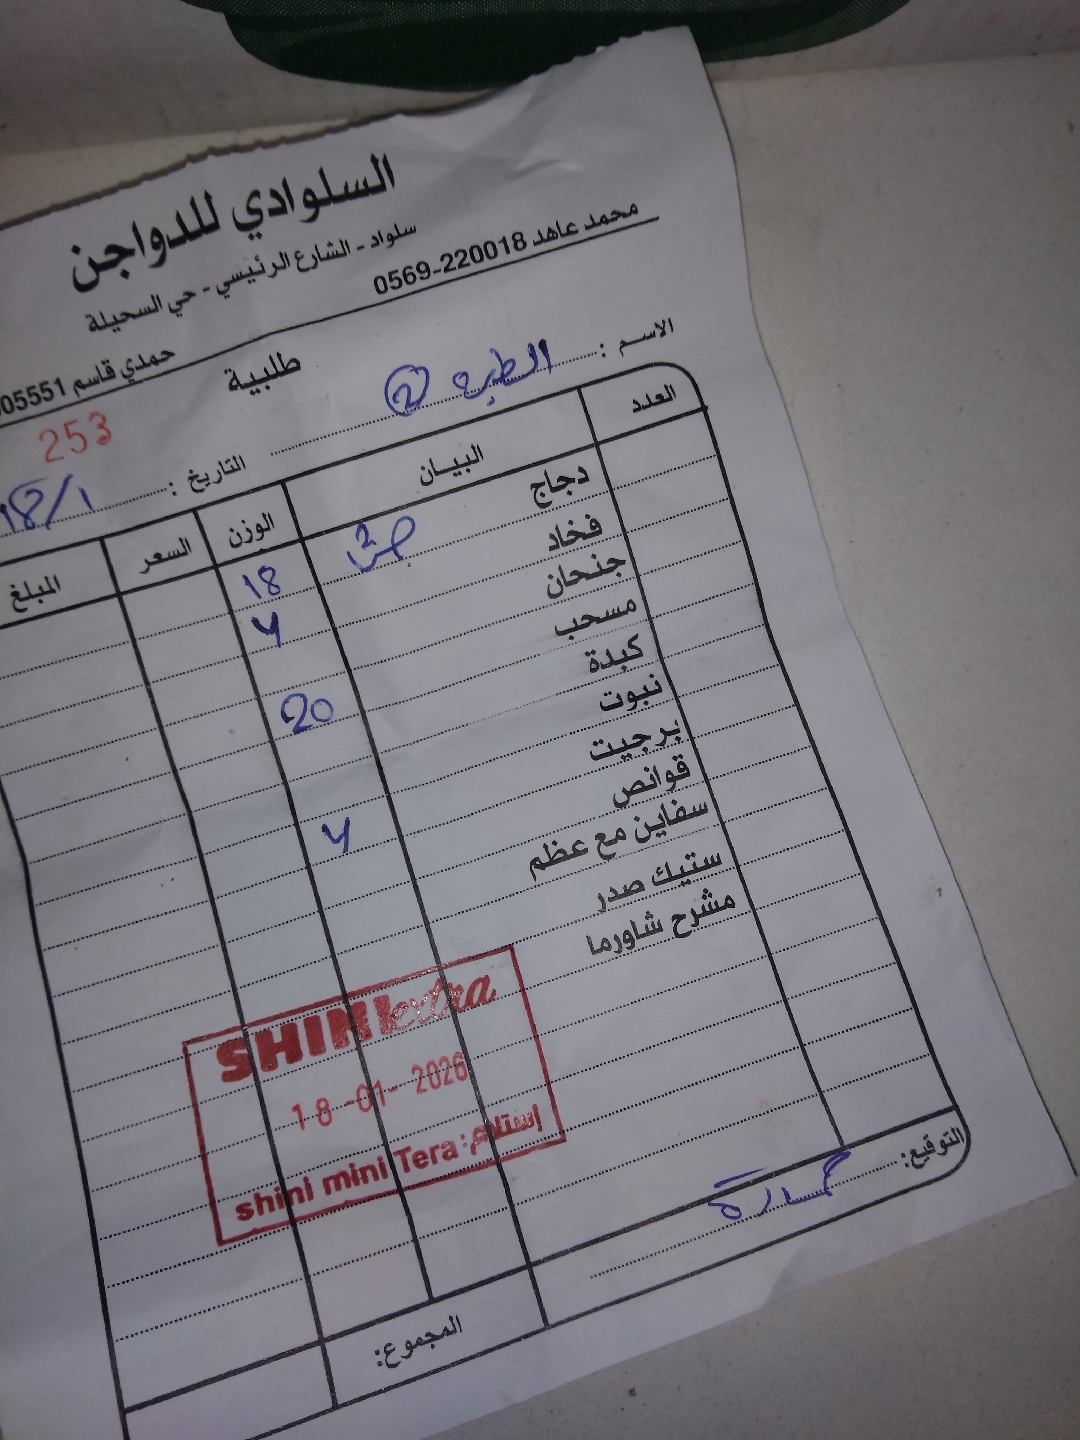 السلوادي للدواجن
سلواد - الشارع الرئيسي - حي السحيلة
محمد عاهد 0569-220018
حمدي قاسم 05551
طلبية
253
الاسم : الطيره 2
التاريخ : 18/1
العدد البيان الوزن السعر المبلغ
دجاج 18
فخاد 4
جنحان
مسحب 20
كبدة
نبوت
برجيت 4
قوانص
سفاين مع عظم
ستيك صدر
مشرح شاورما
SHINI extra
18-01-2026
shini mini Tera :إستلام
التوقيع:
المجموع: